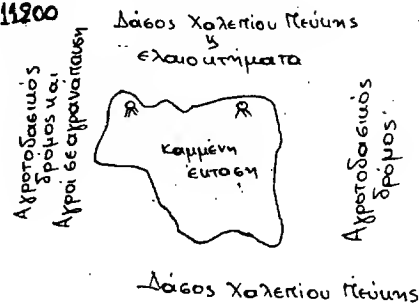 11200
Δάσος Χαλεπίου Πεύκης
&
ελαιοκτήματα
Αγροτοδασικός
δρόμος και
Αγροί σε αγρανάπαυση
καμμένη
έκταση
Αγροτοδασικός
δρόμος.
Δάσος Χαλεπίου Πεύκης